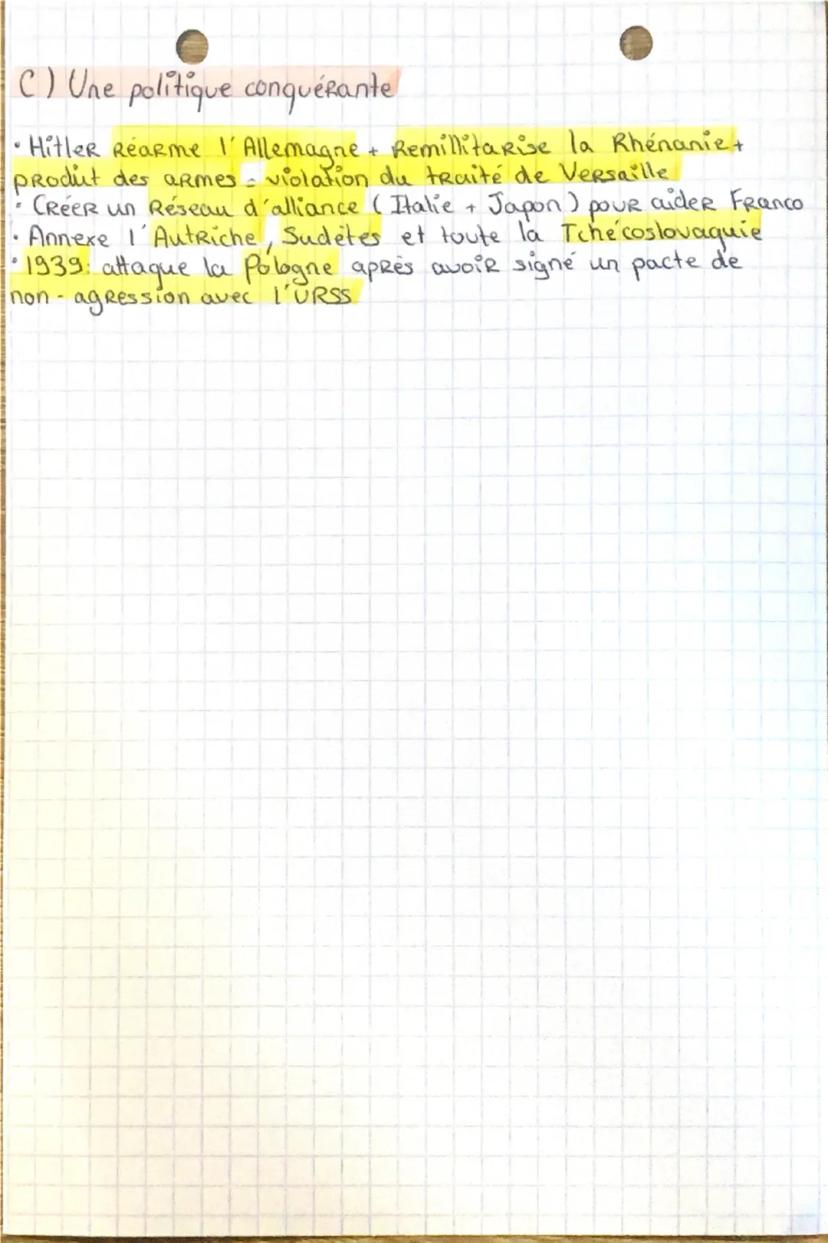 C) Une politique conquérante
• Hitler réarme l'Allemagne + Remillitarise la Rhénanie +
produit des armes = violation du traité de Versaille
• Créer un Réseau d'alliance (Italie + Japon) pour aider Franco
• Annexe l'Autriche, Sudètes et toute la Tchécoslovaquie
• 1939: attaque la Pologne après avoir signé un pacte de
non-agression avec l'URSS